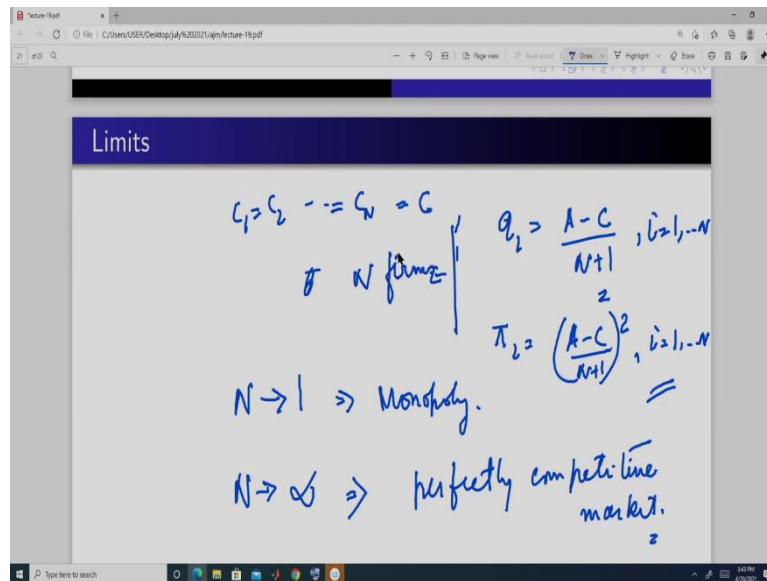 *lecture-19.pdf
File | C:/Users/USER/Desktop/july%202021/ajm/lecture-19.pdf
21 of 23
Page view | Read aloud | Draw | Highlight | Erase
Limits
C₁ = C₂ - - = C_N = C
N firms
q_i = (A-C)/(N+1), i=1,..N
π_i = ((A-C)/(N+1))², i=1,..N
N → 1 ⇒ Monopoly.
N → ∞ ⇒ perfectly competitive
market.
Type here to search
3:43 PM
4/20/2021